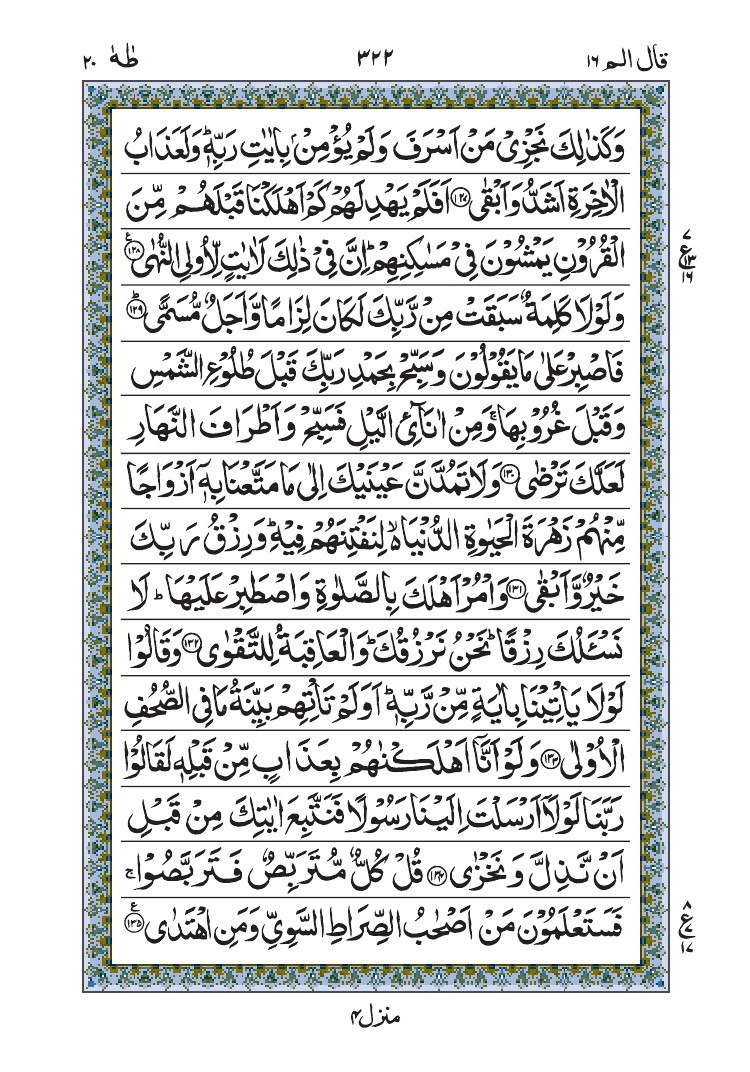 قال الم ١٦ ٣٢٢ طٰهٰ ٢٠
وَكَذٰلِكَ نَجْزِیْ مَنْ اَسْرَفَ وَلَمْ یُؤْمِنْۢ بِاٰیٰتِ رَبِّهٖؕ وَلَعَذَابُ
الْاٰخِرَةِ اَشَدُّ وَاَبْقٰی ۝١٢٧ اَفَلَمْ یَهْدِ لَهُمْ كَمْ اَهْلَكْنَا قَبْلَهُمْ مِّنَ
الْقُرُوْنِ یَمْشُوْنَ فِیْ مَسٰكِنِهِمْؕ اِنَّ فِیْ ذٰلِكَ لَاٰیٰتٍ لِّاُولِی النُّهٰی ۝١٢٨ۧ
٧
ع
١٣
١٦
وَلَوْلَا كَلِمَةٌ سَبَقَتْ مِنْ رَّبِّكَ لَكَانَ لِزَامًا وَّاَجَلٌ مُّسَمًّی ۝١٢٩ؕ
فَاصْبِرْ عَلٰی مَا یَقُوْلُوْنَ وَسَبِّحْ بِحَمْدِ رَبِّكَ قَبْلَ طُلُوْعِ الشَّمْسِ
وَقَبْلَ غُرُوْبِهَاۚ وَمِنْ اٰنَآئِ الَّیْلِ فَسَبِّحْ وَاَطْرَافَ النَّهَارِ
لَعَلَّكَ تَرْضٰی ۝١٣٠ وَلَا تَمُدَّنَّ عَیْنَیْكَ اِلٰی مَا مَتَّعْنَا بِهٖۤ اَزْوَاجًا
مِّنْهُمْ زَهْرَةَ الْحَیٰوةِ الدُّنْیَا ۙ۬ لِنَفْتِنَهُمْ فِیْهِؕ وَرِزْقُ رَبِّكَ
خَیْرٌ وَّاَبْقٰی ۝١٣١ وَاْمُرْ اَهْلَكَ بِالصَّلٰوةِ وَاصْطَبِرْ عَلَیْهَاؕ لَا
نَسْـَٔلُكَ رِزْقًاؕ نَحْنُ نَرْزُقُكَؕ وَالْعَاقِبَةُ لِلتَّقْوٰی ۝١٣٢ وَقَالُوْا
لَوْلَا یَاْتِیْنَا بِاٰیَةٍ مِّنْ رَّبِّهٖؕ اَوَلَمْ تَاْتِهِمْ بَیِّنَةُ مَا فِی الصُّحُفِ
الْاُوْلٰی ۝١٣٣ وَلَوْ اَنَّاۤ اَهْلَكْنٰهُمْ بِعَذَابٍ مِّنْ قَبْلِهٖ لَقَالُوْا
رَبَّنَا لَوْلَاۤ اَرْسَلْتَ اِلَیْنَا رَسُوْلًا فَنَتَّبِعَ اٰیٰتِكَ مِنْ قَبْلِ
اَنْ نَّذِلَّ وَنَخْزٰی ۝١٣٤ قُلْ كُلٌّ مُّتَرَبِّصٌ فَتَرَبَّصُوْاۚ
فَسَتَعْلَمُوْنَ مَنْ اَصْحٰبُ الصِّرَاطِ السَّوِیِّ وَمَنِ اهْتَدٰی ۝١٣٥ۧ
٨
ع
٧
١٧
منزل ۴